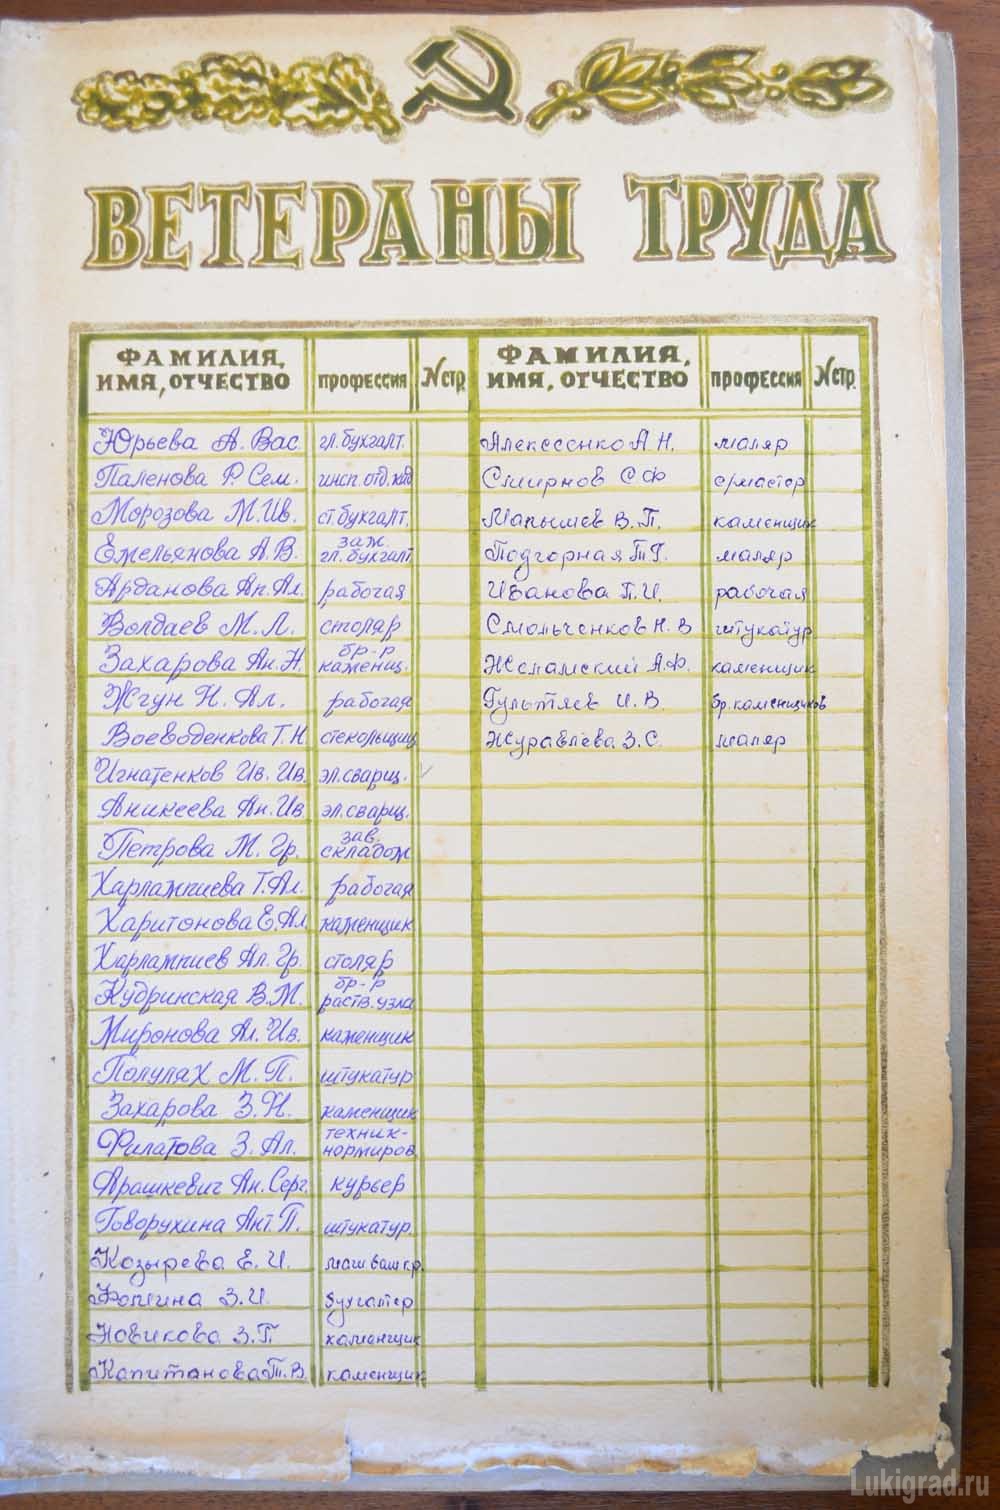 ВЕТЕРАНЫ ТРУДА
ФАМИЛИЯ, ИМЯ, ОТЧЕСТВО ПРОФЕССИЯ №СТР.
Юрьева А. Вас. гл. бухгалт.
Паленова Р. Сем. инсп. отд. кад
Морозова М. Ив. ст. бухгалт.
Емельянова А. В. зам. гл. бухгалт
Арданова Ан. Ал. рабочая
Волдаев М. Л. столяр
Захарова Ан. Н. бр-р каменщ.
Жгун Н. Ал. рабочая
Воеводенкова Т. Н стекольщиц
Игнатенков Ив. Ив. эл. сварщ.
Аникеева Ан. Ив эл. сварщ.
Петрова М. Гр. зав. складом
Харлампиева Т. Ал. рабочая
Харитонова Е. Ал каменщик
Харлампиев Ал. Гр. столяр
Кудринская В. М. бр-р раств. узла
Миронова Ал. Ив. каменщик
Полулях М. П. штукатур
Захарова З. Н. каменщик
Филатова З. Ал. техник-нормиров
Арашкевич Ан. Серг. курьер
Говорухина Ант. П. штукатур.
Козырева Е. И. маш башкр.
Фомина З. И. бухгалтер
Новикова З. П каменщик
Капитанова Т. В. каменщик
ФАМИЛИЯ, ИМЯ, ОТЧЕСТВО ПРОФЕССИЯ №СТР.
Алексеенко А. Н. маляр
Смирнов С Ф с/мастер
Малышев В. П. каменщик
Подгорная Т. Г. маляр
Иванова П. И. рабочая
Смольченков Н. В штукатур
Желамский А. Ф. каменщик
Гультяев И. В. бр. каменщиков
Журавлёва З. С. маляр
Lukigrad.ru